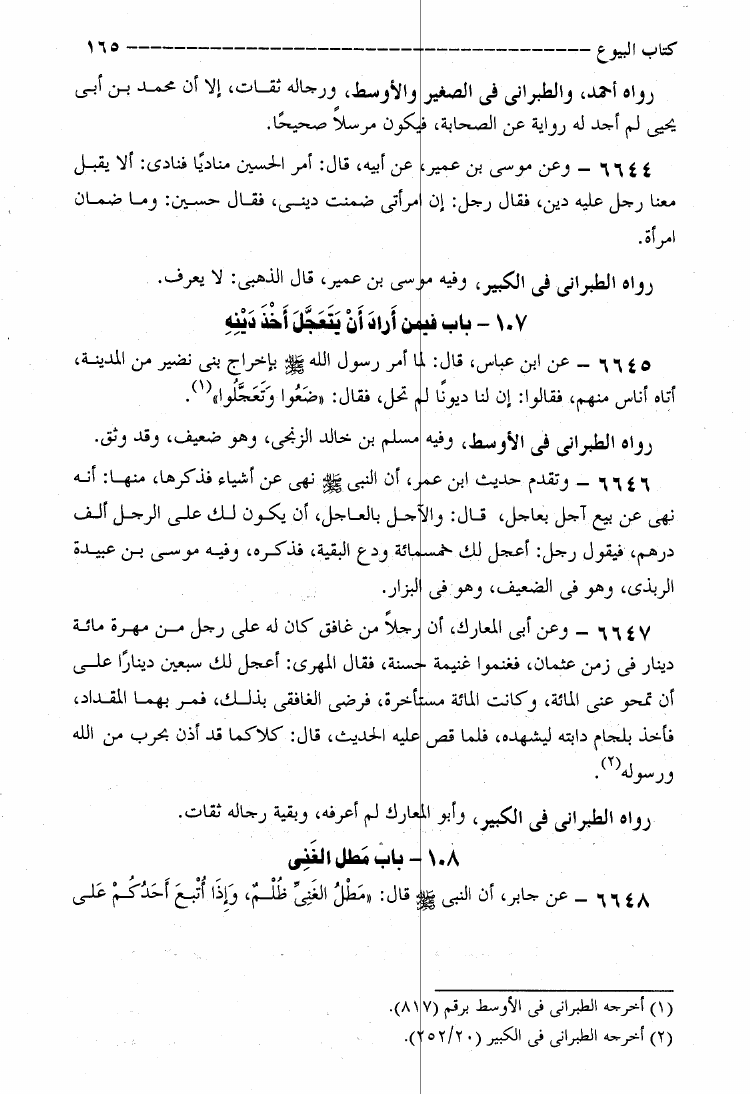 كتاب البيوع ------------------------------------------ ١٦٥
رواه أحمد، والطبرانى فى الصغير والأوسط، ورجاله ثقـات، إلا أن محمـد بـن أبـى
يحيى لم أجد له رواية عن الصحابة، فيكون مرسلاً صحيحًا.
٦٦٤٤ – وعن موسى بن عمير، عن أبيه، قال: أمر الحسين مناديًا فنادى: ألا يقبـل
معنا رجل عليه دين، فقال رجل: إن امرأتى ضمنت دينـى، فقـال حسـين: ومـا ضمـان
امرأة.
رواه الطبرانى فى الكبير، وفيه موسى بن عمير، قال الذهبى: لا يعرف.
١٠٧ – باب فيمن أَرَادَ أَنْ يَتَعَجَّلَ أَخْذَ دَيْنِهِ
٦٦٤٥ – عن ابن عباس، قال: لما أمر رسول الله ﷺ بإخراج بنى نضير من المدينـة،
أتاه أناس منهم، فقالوا: إن لنا ديونًا لم تحل، فقال: «ضَعُوا وَتَعَجَّلُوا»(١).
رواه الطبرانى فى الأوسط، وفيه مسلم بن خالد الزنجى، وهو ضعيف، وقد وثق.
٦٦٤٦ – وتقدم حديث ابن عمر، أن النبى ﷺ نهى عن أشياء فذكرها، منهـا: أنـه
نهى عن بيع آجل بعاجل، قـال: والآجـل بالعـاجل، أن يكـون لـك علـى الرجـل ألـف
درهم، فيقول رجل: أعجل لك خمسـمائة ودع البقية، فذكـره، وفيـه موسـى بـن عبيـدة
الربذى، وهو فى الضعيف، وهو فى البزار.
٦٦٤٧ – وعن أبى المعارك، أن رجلاً من غافق كان له على رجل مـن مهـرة مائـة
دينار فى زمن عثمان، فغنموا غنيمة حسنة، فقال المهرى: أعجل لك سبعين دينارًا علـى
أن تمحو عنى المائة، وكانت المائة مستأخرة، فرضى الغافقى بذلـك، فمـر بهمـا المقـداد،
فأخذ بلجام دابته ليشهده، فلما قص عليه الحديث، قال: كلاكما قد أذن بحرب من الله
ورسوله(٢).
رواه الطبرانى فى الكبير، وأبو المعارك لم أعرفه، وبقية رجاله ثقات.
١٠٨ – باب مَطل الغَنِى
٦٦٤٨ – عن جابر، أن النبى ﷺ قال: «مَطْلُ الغَنِىِّ ظُلْـمٌ، وَإِذَا أُتْبِـعَ أَحَدُكُـمْ عَلـى
(١) أخرجه الطبرانى فى الأوسط برقم (٨١٧).
(٢) أخرجه الطبرانى فى الكبير (٢٥٢/٢٠).